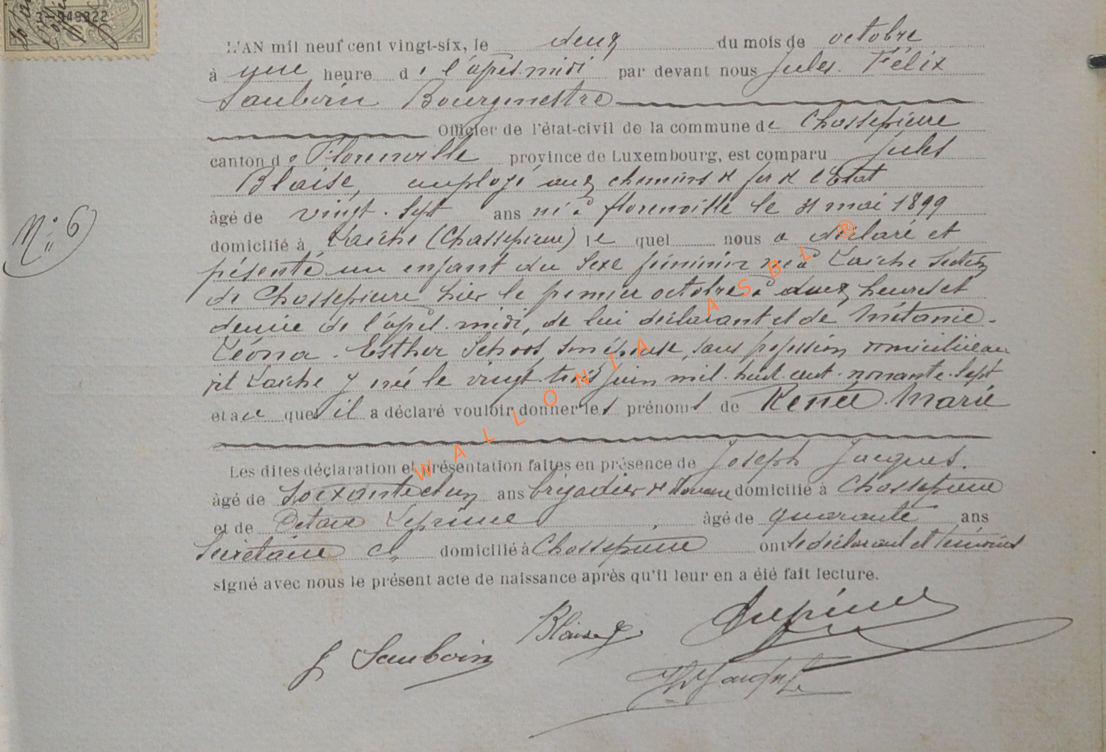 3-949322
L'AN mil neuf cent vingt-six, le deux du mois de octobre
à une heure d e l'après midi par devant nous Jules Félix
Sauboin Bourgmestre
Officier de l'état-civil de la commune de Chassepierre
canton de Florenville province de Luxembourg, est comparu Jules
Blaise, employé aux chemins de fer de l'Etat
âgé de vingt-sept ans né à Florenville le 31 mai 1899
domicilié à Laiche (Chassepierre) le quel nous a déclaré et
présenté un enfant du sexe féminin né à Laiche section
de Chassepierre hier le premier octobre à deux heures et
demie de l'après-midi, de lui déclarant et de Mélanie-
Léona-Esther Schoos, son épouse, sans profession domiciliée au
dit Laiche y née le vingt trois juin mil huit cent nonante-sept
et au quel il a déclaré vouloir donner les prénoms de Renée-Marie
Les dites déclaration et présentation faites en présence de Joseph Jacques
âgé de soixante et un ans brigadier de douane domicilié à Chassepierre
et de Octave Leprince, âgé de quarante ans
Secrétaire cl domicilié à Chassepierre ont le déclarant et témoins
signé avec nous le présent acte de naissance après qu'il leur en a été fait lecture.
N° 6
WALLONIA ASBL ®
J Sauboin
Blaise J
Leprince